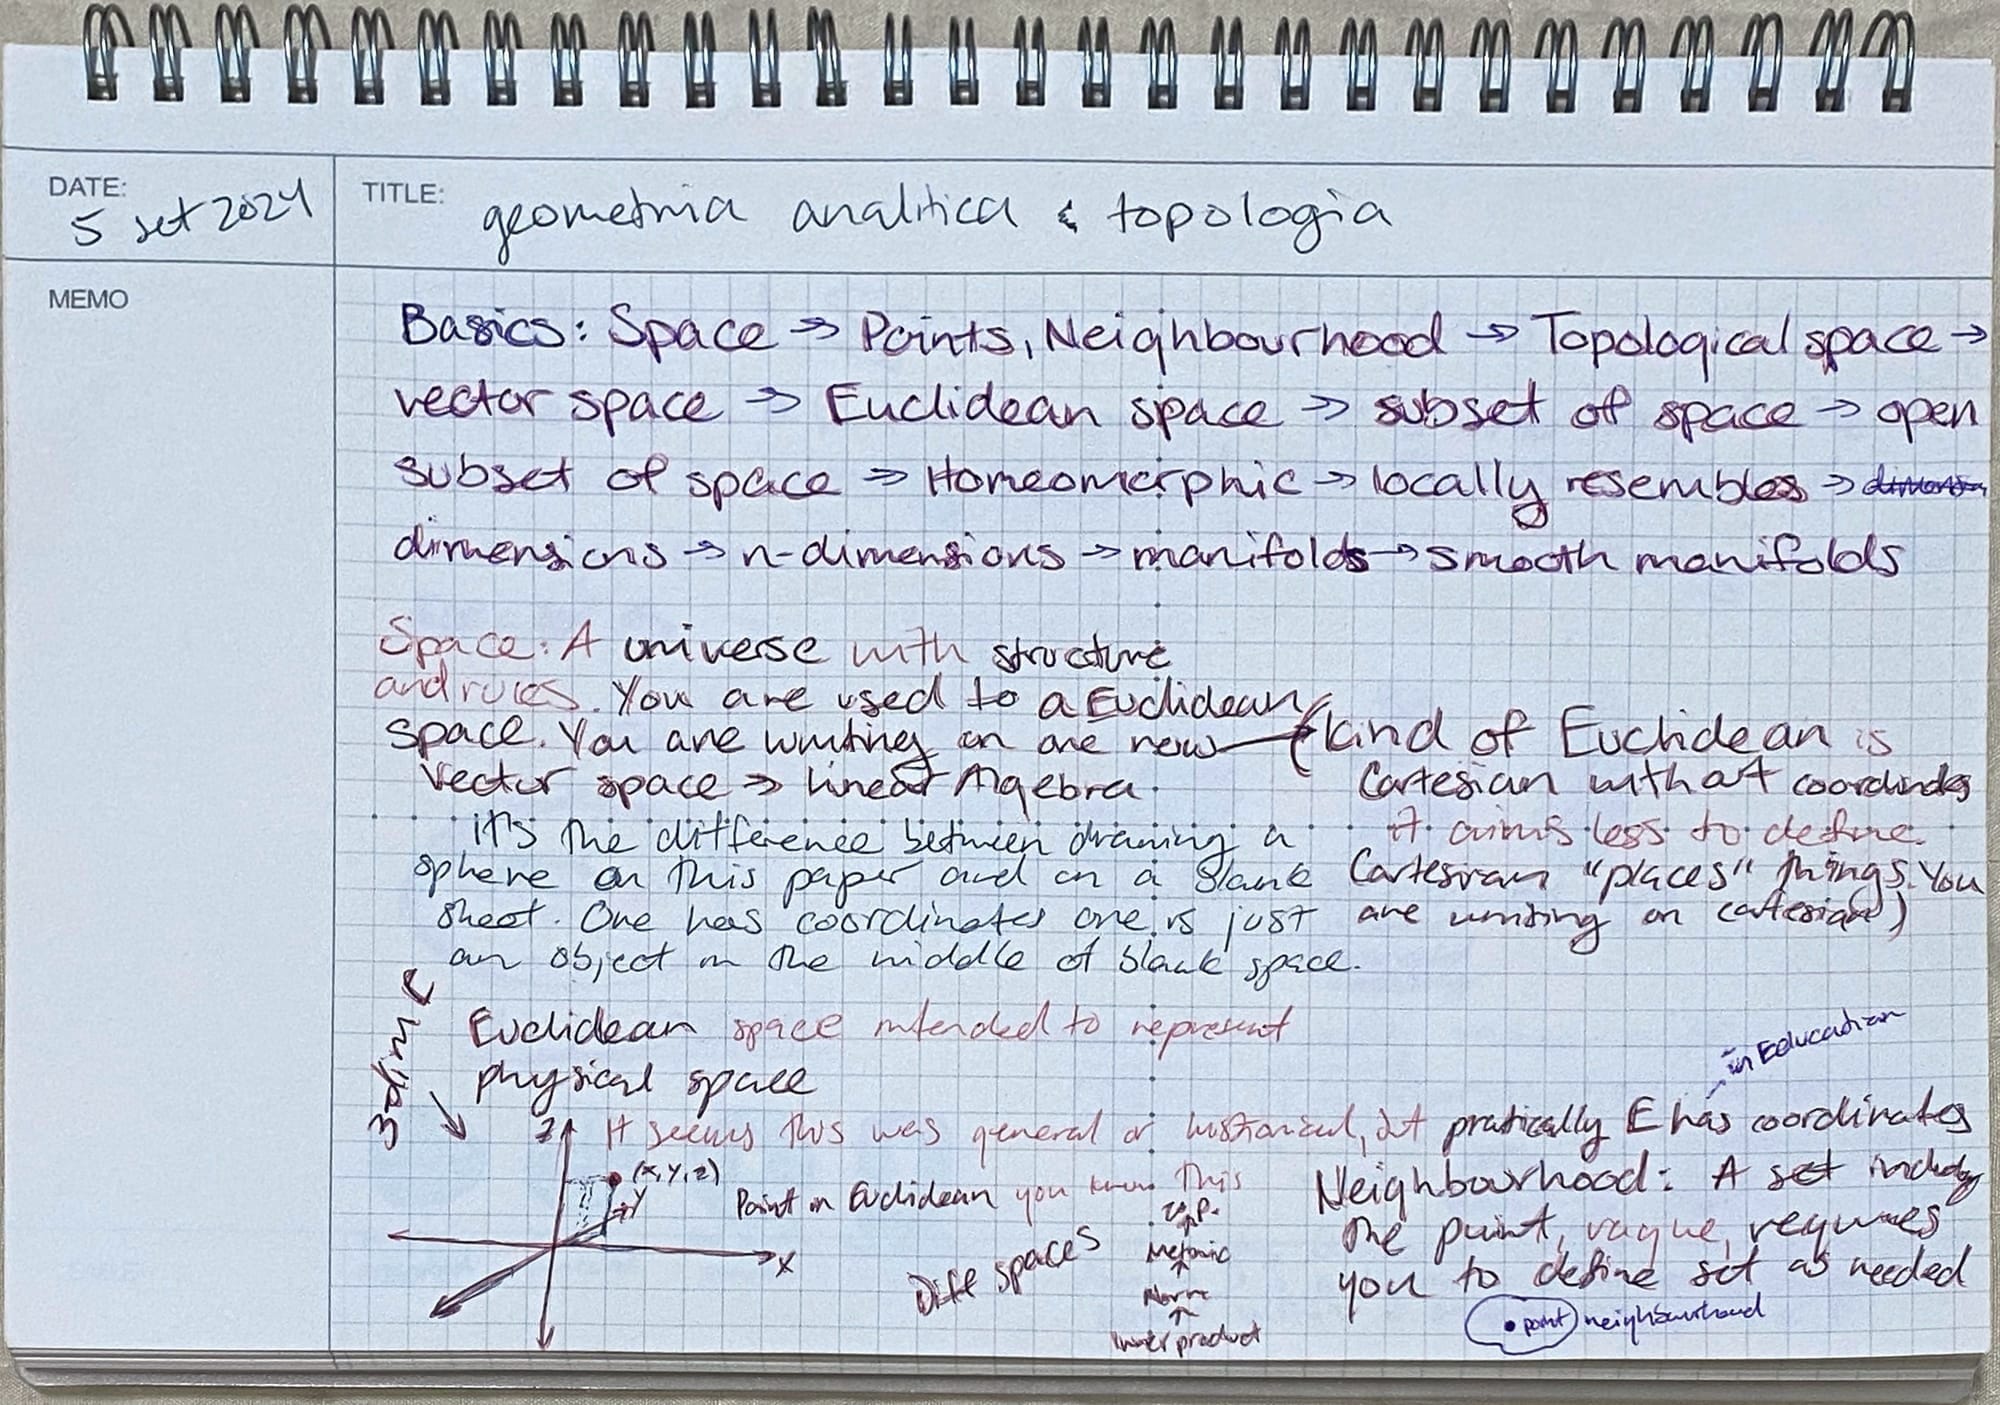 DATE:
5 set 2024
TITLE:
geometria analitica & topologia
MEMO
Basics: Space → Points, Neighbourhood → Topological space →
vector space → Euclidean space → subset of space → open
subset of space → Homeomorphic → locally resembles →
dimensions → n-dimensions → manifolds → smooth manifolds
Space: A universe with structure
and rules. You are used to a Euclidean
space. You are writing on one now
vector space → Linear Algebra.
it's the difference between drawing a
sphere on this paper and on a blank
sheet. One has coordinates one is just
an object in the middle of blank space.
(kind of Euclidean is
Cartesian without coordinates
it aims less to define.
Cartesian "places" things. You
are writing on cartesian)
3dim E
Euclidean space intended to represent
physical space
in Eeducation
It seems this was general or historical, but pratically E has coordinates
z
(x,y,z)
y
x
Point in Euclidean you know this
Diff spaces
Top.
Metric
Norm
Inner product
Neighbourhood: A set including
the point, vague, requires
you to define set as needed
point neighbourhood